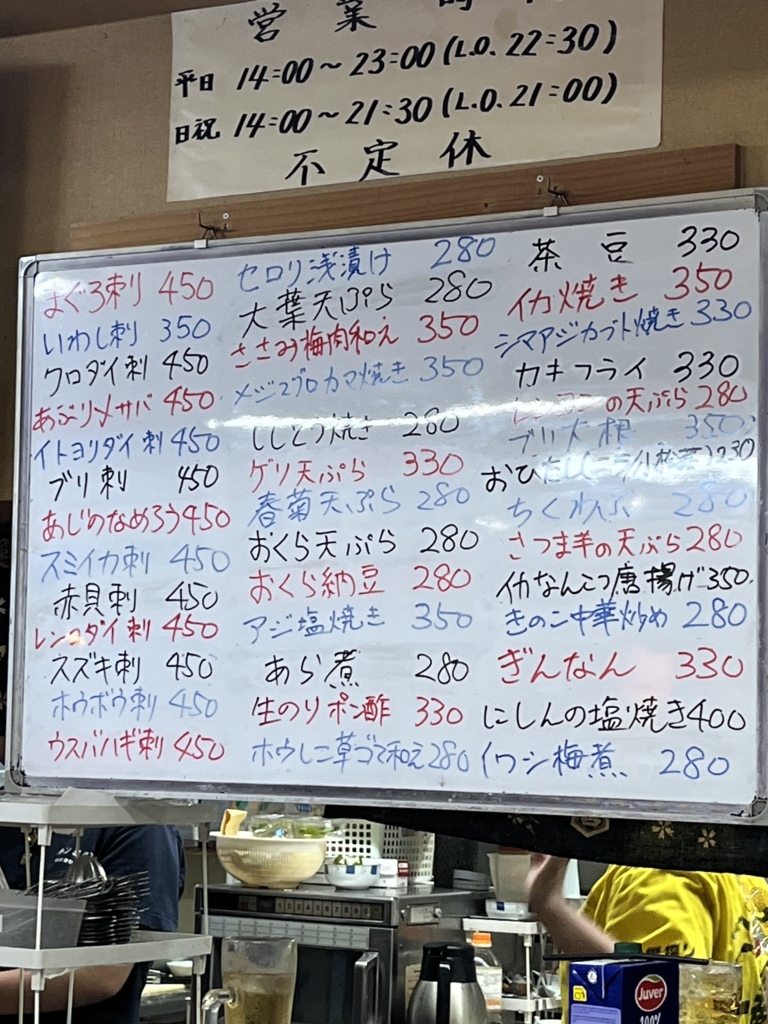 営業時
平日 14:00～23:00 (L.O. 22:30)
日祝 14:00～21:30 (L.O. 21:00)
不定休
まぐろ刺 450
いわし刺 350
クロダイ刺 450
あぶりメサバ 450
イトヨリダイ刺 450
ブリ刺 450
あじのなめろう 450
スミイカ刺 450
赤貝刺 450
レンコダイ刺 450
スズキ刺 450
ホウボウ刺 450
ウスバハギ刺 450
セロリ浅漬け 280
大葉天ぷら 280
ささみ梅肉和え 350
メジマグロカマ焼き 350
ししとう焼き 280
ゲソ天ぷら 330
春菊天ぷら 280
おくら天ぷら 280
おくら納豆 280
アジ塩焼き 350
あら煮 280
生のりポン酢 330
ホウレン草ゴマ和え 280
茶豆 330
イカ焼き 350
シマアジカブト焼き 330
カキフライ 330
レンコンの天ぷら 280
ブリ大根 350
おひたし 230
ちくわぶ 280
さつま芋の天ぷら 280
イカなんこつ唐揚げ 350
きのこ中華炒め 280
ぎんなん 330
にしんの塩焼き 400
イワシ梅煮 280
Juver
100%